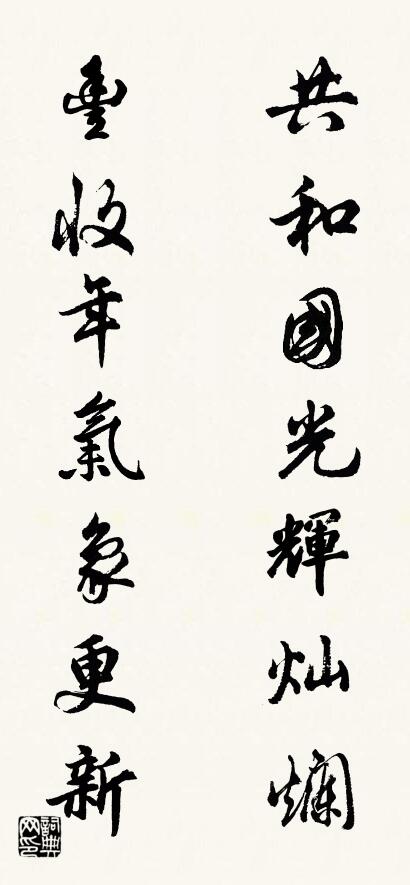 共和國光輝灿爛
豊收年氣象更新
詞典网印